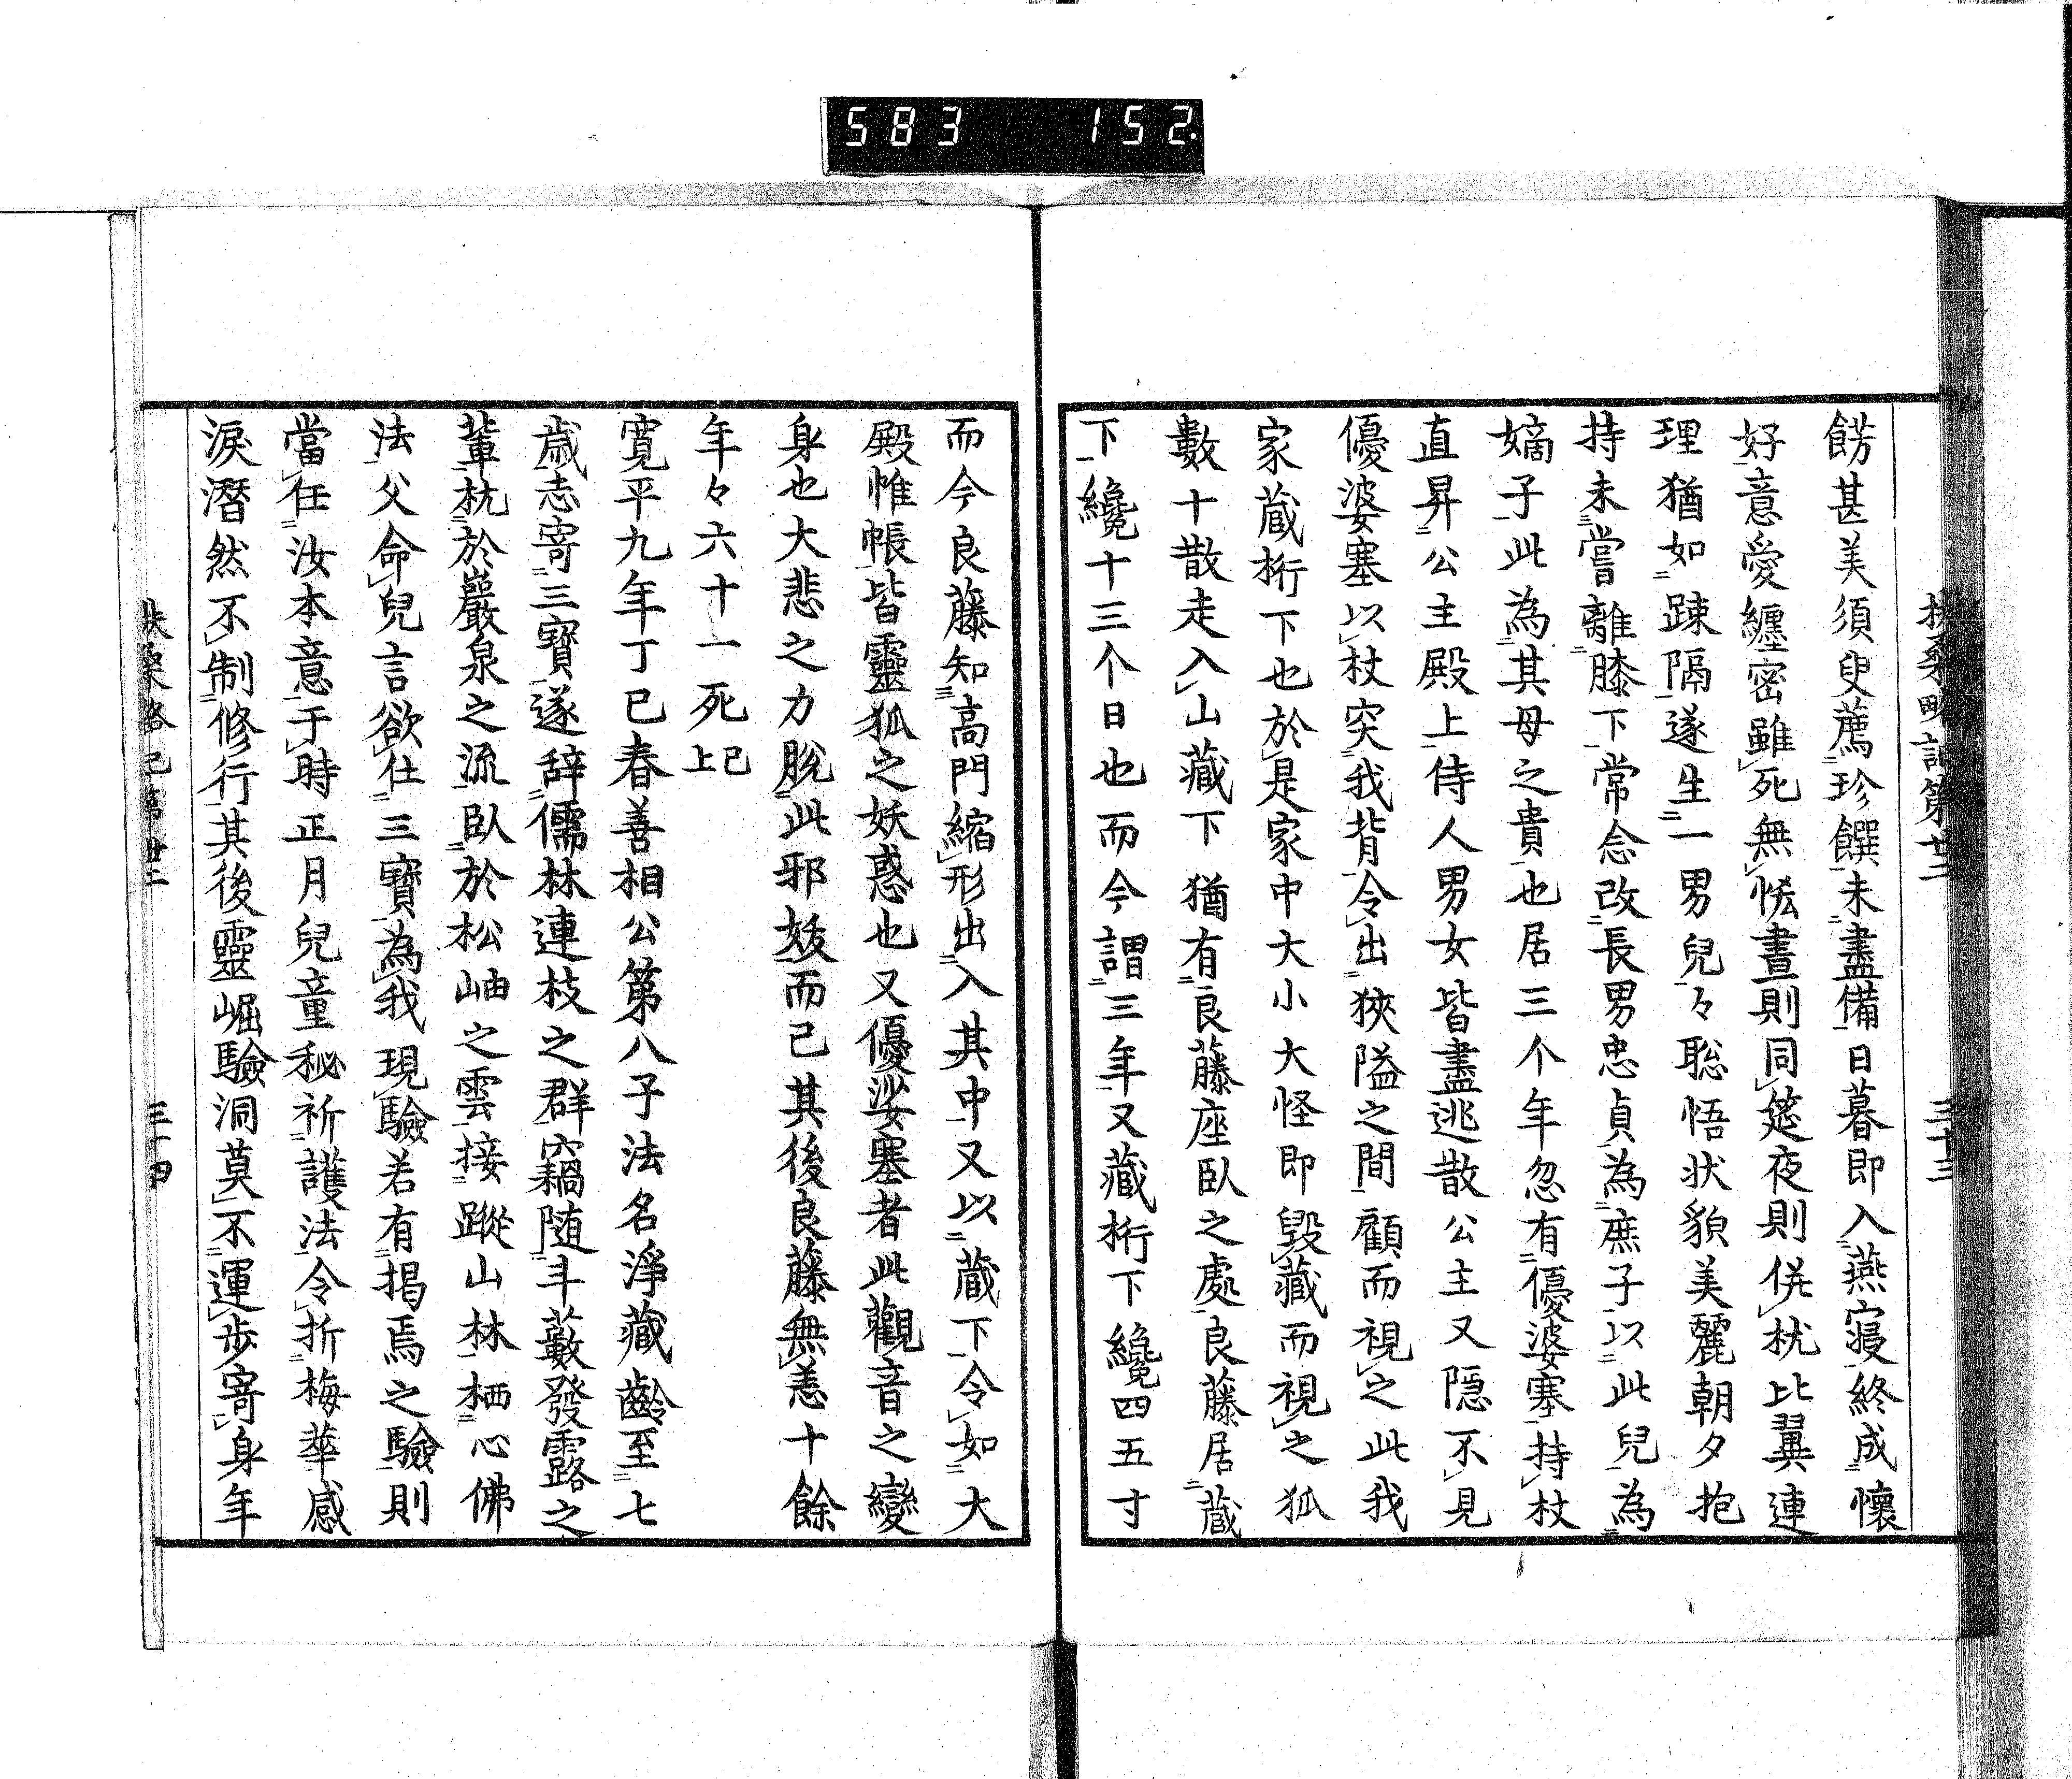 583 152
扶桑略記第廿二 三十三
餝甚美須臾薦珍饌未盡備日暮即入燕寝終成懷
好意愛纏密雖死無恡晝則同筵夜則併枕比翼連
理猶如踈隔遂生一男兒々聡悟状貌美麗朝夕抱
持未嘗離膝下常念改長男忠貞為庶子以此兒為
嫡子此為其母之貴也居三个年忽有優婆塞持杖
直昇公主殿上侍人男女皆盡逃散公主又隠不見
優婆塞以杖突我背令出狹隘之間顧而視之此我
家蔵桁下也於是家中大小大怪即毀藏而視之狐
數十散走入山藏下猶有良藤座臥之處良藤居蔵
下纔十三个日也而今謂三年又藏桁下纔四五寸
而今良藤知高門縮形出入其中又以蔵下令如大
殿帷帳皆靈狐之妖惑也又優婆塞者此觀音之變
身也大悲之力脱此邪妖而已其後良藤無恙十餘
年々六十一死已上
寛平九年丁巳春善相公第八子法名淨藏齡至七
歳志寄三寶遂辞儒林連枝之群竊随斗藪發露之
輩枕於巖泉之流臥於松岫之雲接蹤山林栖心佛
法父命兒言欲仕三寶為我現驗若有掲焉之驗則
當任汝本意于時正月兒童秘祈護法令折梅華感
淚潛然不制修行其後靈崛驗洞莫不運歩寄身年
扶桑略記第廿二 三十四